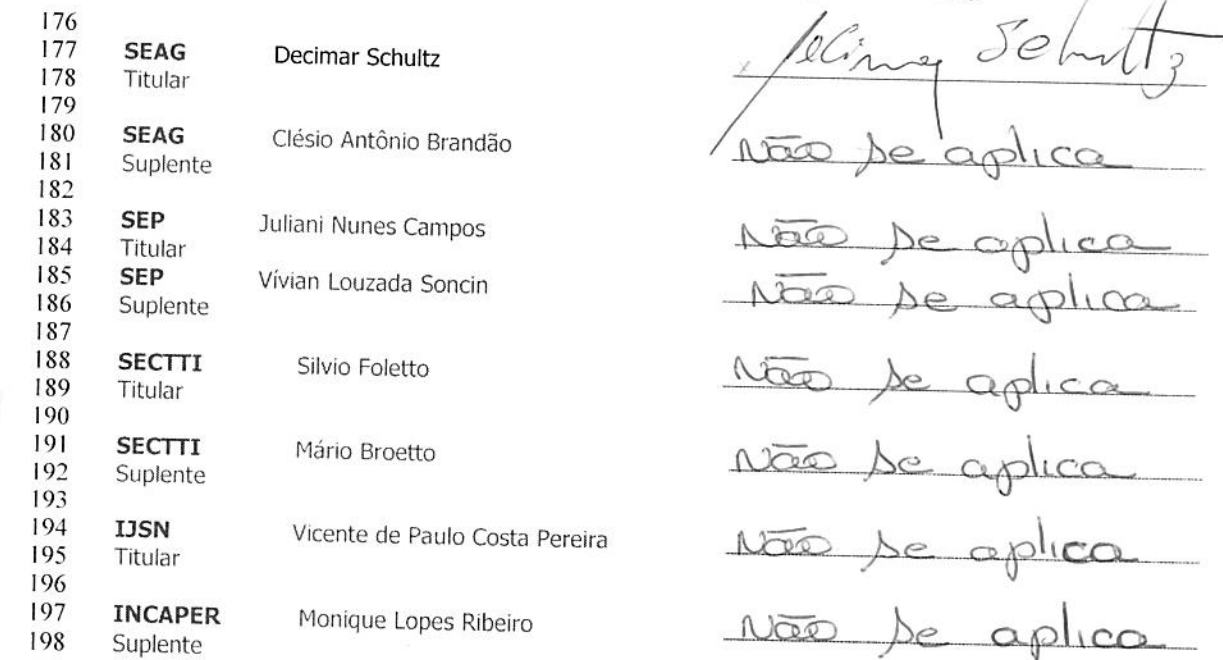 176
177 SEAG Decimar Schultz Decimar Schultz
178 Titular
179
180 SEAG Clésio Antônio Brandão Não se aplica
181 Suplente
182
183 SEP Juliani Nunes Campos Não se aplica
184 Titular
185 SEP Vívian Louzada Soncin Não se aplica
186 Suplente
187
188 SECTTI Silvio Foletto Não se aplica
189 Titular
190
191 SECTTI Mário Broetto Não se aplica
192 Suplente
193
194 IJSN Vicente de Paulo Costa Pereira Não se aplica
195 Titular
196
197 INCAPER Monique Lopes Ribeiro Não se aplica
198 Suplente